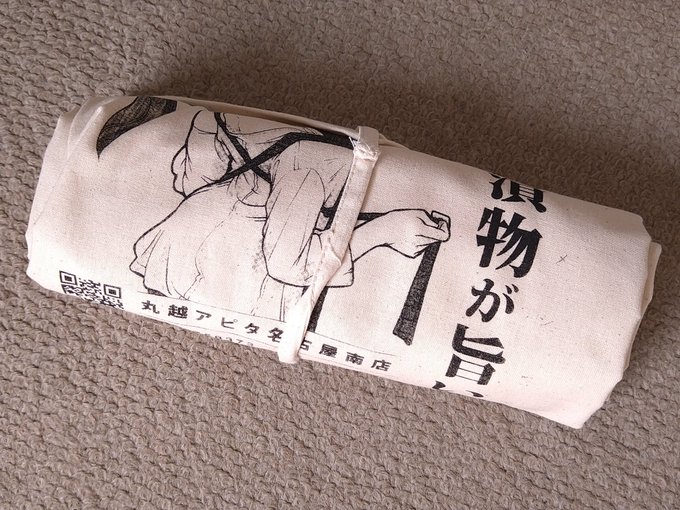 漬物が旨い
丸越アピタ名古屋南店